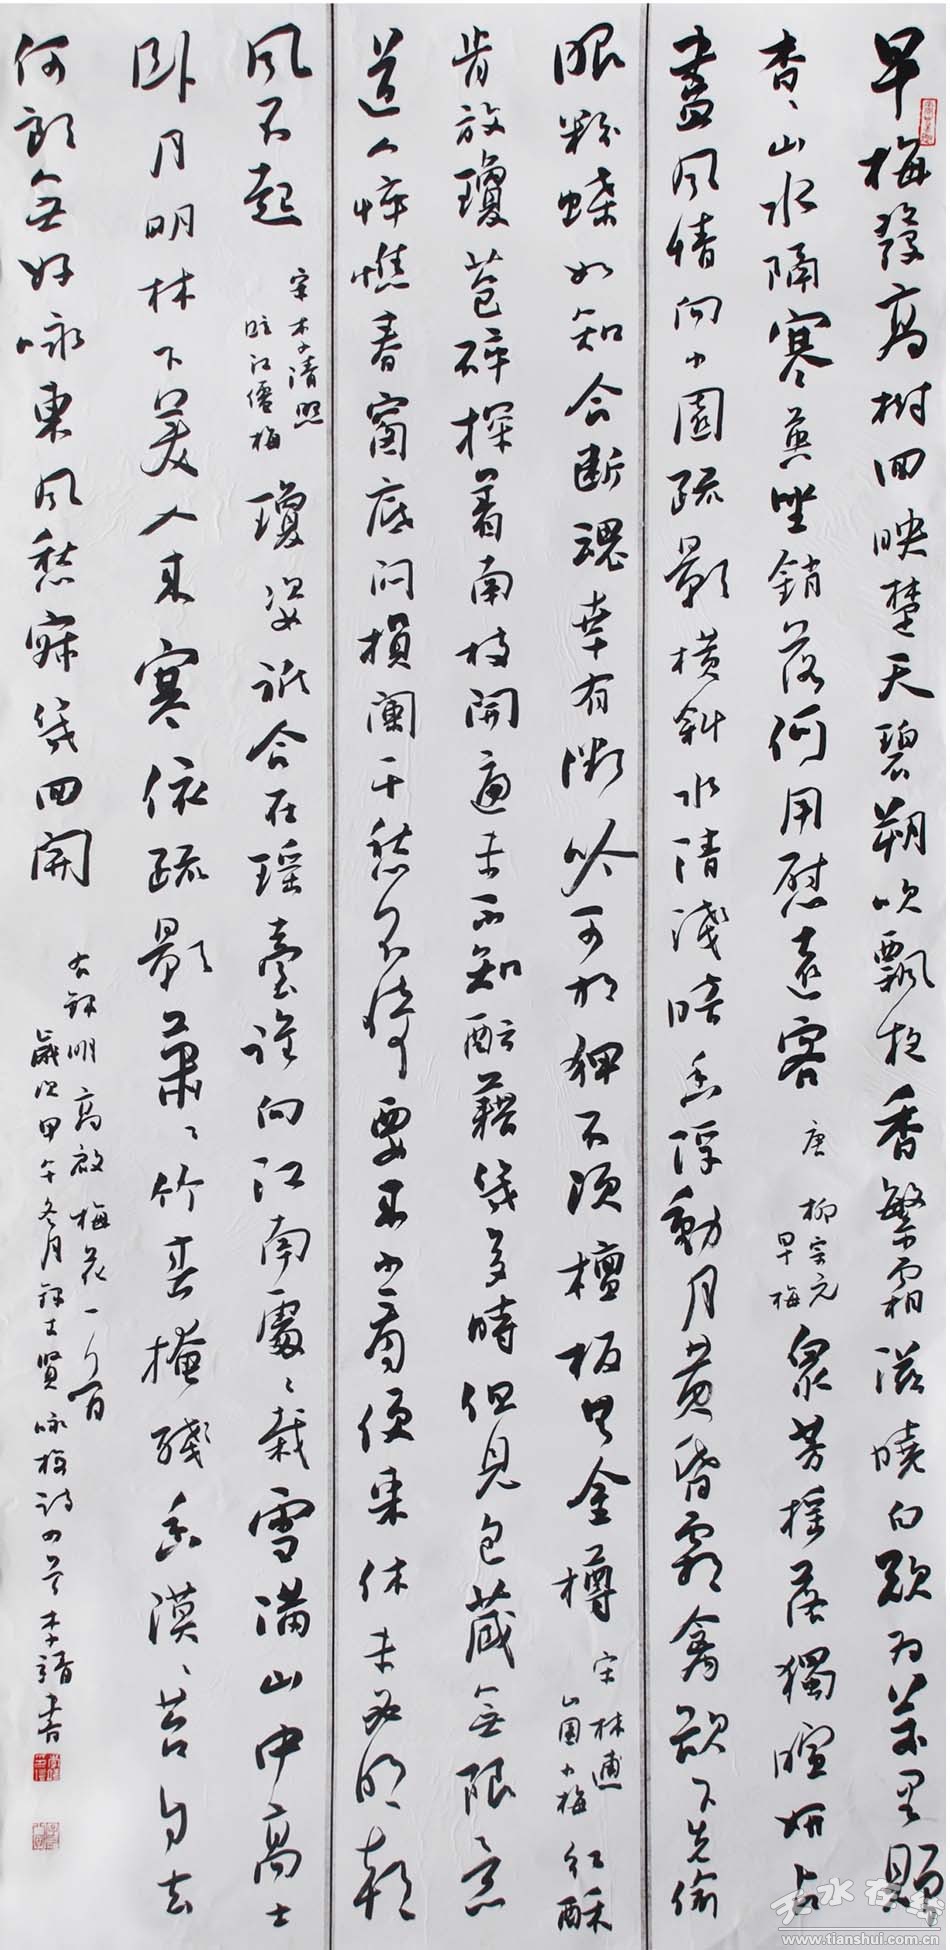 早梅發高樹迥映楚天碧朔吹飄夜香繁霜滋曉白欲為萬里贈
杳、山水隔寒英坐銷落何用慰遠客 唐 柳宗元 早梅 衆芳搖落獨暄妍占
盡風情向小園疏影橫斜水清淺暗香浮動月黃昏霜禽欲下先偷
眼粉蝶如知合斷魂幸有微吟可相狎不須檀板共金樽 宋 林逋 山園小梅 紅酥
肯放瓊苞碎探著南枝開遍未不知醖藉幾多時但見包藏無限意
道人悴憔春窗底悶損闌干愁不倚要來小看便來休未必明朝
風不起 宋李清照 臨江僊梅 瓊姿祗合在瑤臺誰向江南處、栽雪滿山中高士
卧月明林下美人來寒依疏影蕭、竹春掩殘香漠、苔自去
何郎無好詠東風愁寂幾回開 右錄明高啟梅花一首
歲次甲午冬月錄古賢詠梅詩四首李靖書
天水在线
www.tianshui.com.cn